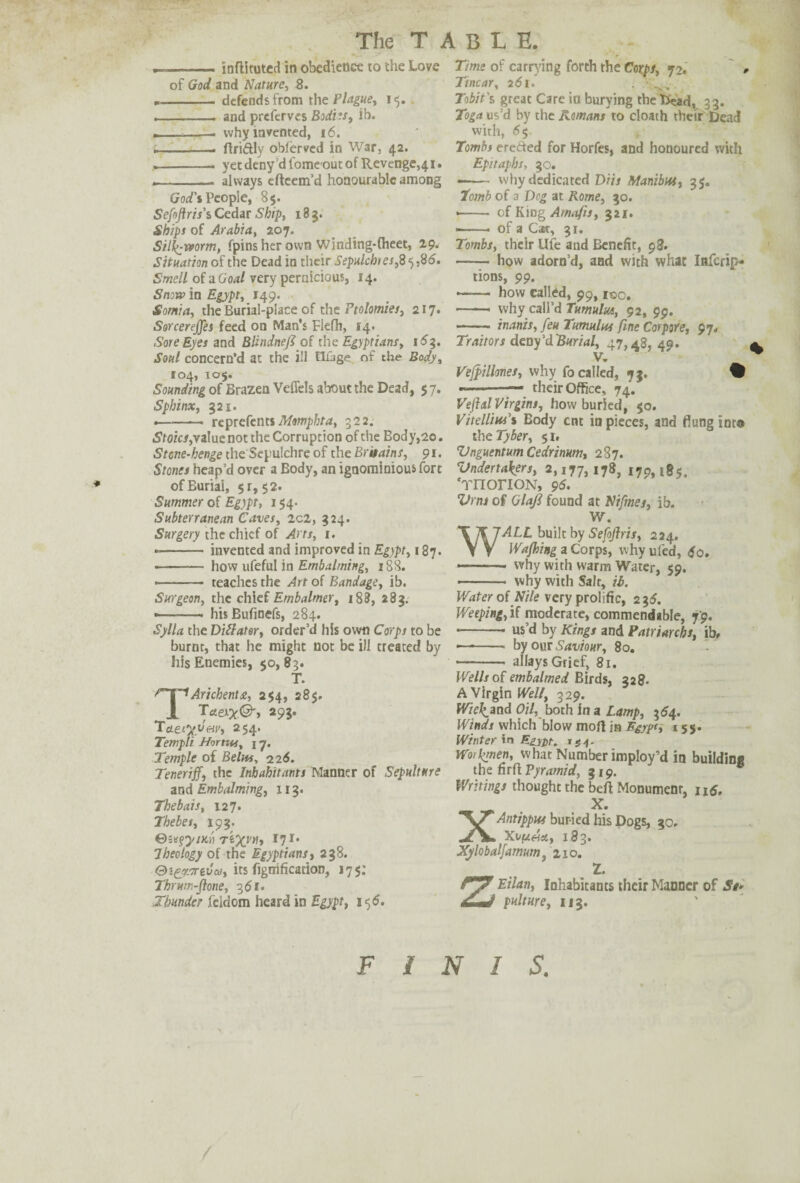 The TABLE.
——— inſtituted in obedience to the Love
of God and Nature, 8.
——— defends from the Plague, 15.
——— and preſerves Bodies, ib.
——— why invented, 16.
——— ſtrictly obſerved in War, 42.
——— yet deny'd ſome out of Revenge, 41.
——— always eſteem'd honourable among
God's People, 85.
Seſoſtris's Cedar Ship, 183.
Ships of Arabia, 207.
Silk-worm, ſpins her own Winding-ſheet, 29.
Situation of the Dead in their Sepulchres, 85, 86.
Smell of a Goal very pernicious, 14.
Snow in Egypt, 149.
Somia, the Burial-place of the Ptolomies, 217.
Sorcereſſes feed on Man's Fleſh, 14.
Sore Eyes and Blindneſs of the Egyptians, 163.
Soul concern'd at the ill Uſage of the Body,
104, 105.
Sounding of Brazen Veſſels about the Dead, 57.
Sphinx, 321.
——— repreſents Momphta, 322.
Stoics, value not the Corruption of the Body, 20.
Stone-henge the Sepulchre of the Britains, 91.
Stones heap'd over a Body, an ignominious ſort
of Burial, 51, 52.
Summer of Egypt, 154.
Subterranean Caves, 202, 324.
Surgery the chief of Arts, 1.
——— invented and improved in Egypt, 187.
——— how uſeful in Embalming, 188.
——— teaches the Art of Bandage, ib.
Surgeon, the chief Embalmer, 188, 283.
——— his Buſineſs, 284.
Sylla the Dictator, order'd his own Corps to be
burnt, that he might not be ill treated by
his Enemies, 50, 83.
T.
TArichentæ, 254, 285.
Ταειχ@, 293.
Ταειχύειν, 254.
Templi Hortus, 17.
Temple of Belus, 226.
Teneriff, the Inhabitants Manner of Sepulture
and Embalming, 113.
Thebais, 127.
Thebes, 193.
Θευργικὴ τέχνη, 171.
Theology of the Egyptians, 238.
its ſignification, 175.
Thrum-ſtone, 361.
Thunder ſeldom heard in Egypt, 156.
Time of carrying forth the Corps, 72.
Tincar, 261.
Tobit's great Care in burying the Dead, 33.
Toga us'd by the Romans to cloath their Dead
with, 65.
Tombs erected for Horſes, and honoured with
Epitaphs, 30.
—— why dedicated Diis Manibus, 35.
Tomb of a Dog at Rome, 30.
—— of King Amaſis, 321.
—— of a Cat, 31.
Tombs, their Uſe and Benefit, 98.
—— how adorn'd, and with what Inſcrip-
tions, 99.
—— how called, 99, 100.
—— why call'd Tumulus, 92, 99.
—— inanis, ſeu Tumulus ſine Corpore, 97.
Traitors deny'd Burial, 47, 48, 49.
V.
Veſpillones, why ſo called, 73.
——— their Office, 74.
Veſtal Virgins, how buried, 50.
Vitellius's Body cut in pieces, and flung into
the Tyber, 51.
Unguentum Cedrinum, 287.
Undertakers, 2, 177, 178, 179, 185.
ὙΠΟΓΙΟΝ, 96.
Urns of Glaſs found at Niſmes, ib.
W.
WALL built by Seſoſtris, 224.
Waſhing a Corps, why uſed, 60.
——— why with warm Water, 59.
——— why with Salt, ib.
Water of Nile very prolific, 236.
Weeping, if moderate, commendable, 79.
——— us'd by Kings and Patriarchs, ib.
——— by our Saviour, 80.
——— allays Grief, 81.
Wells of embalmed Birds, 328.
A Virgin Well, 329.
Wick and Oil, both in a Lamp, 364.
Winds which blow moſt in Egypt, 155.
Winter in Egypt, 154.
Workmen, what Number imploy'd in building
the firſt Pyramid, 319.
Writings thought the beſt Monument, 116.
X.
XAntippus buried his Dogs, 30.
Χυμεία, 183.
Xylobalſamum, 210.
Z.
ZEilan, Inhabitants their Manner of Se-
pulture, 113.
FINIS.